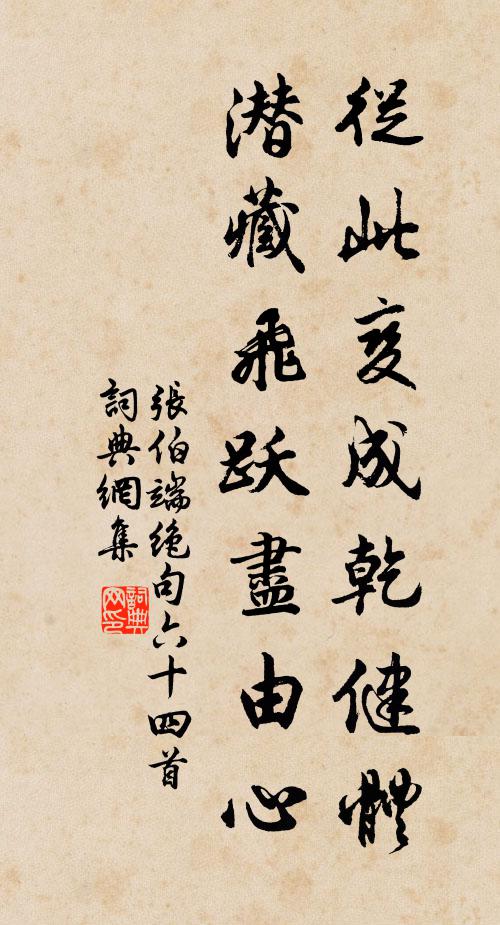 從此变成乾健體
潛藏飛跃盡由心
張伯端绝句六十四首
詞典網集
詞典网印